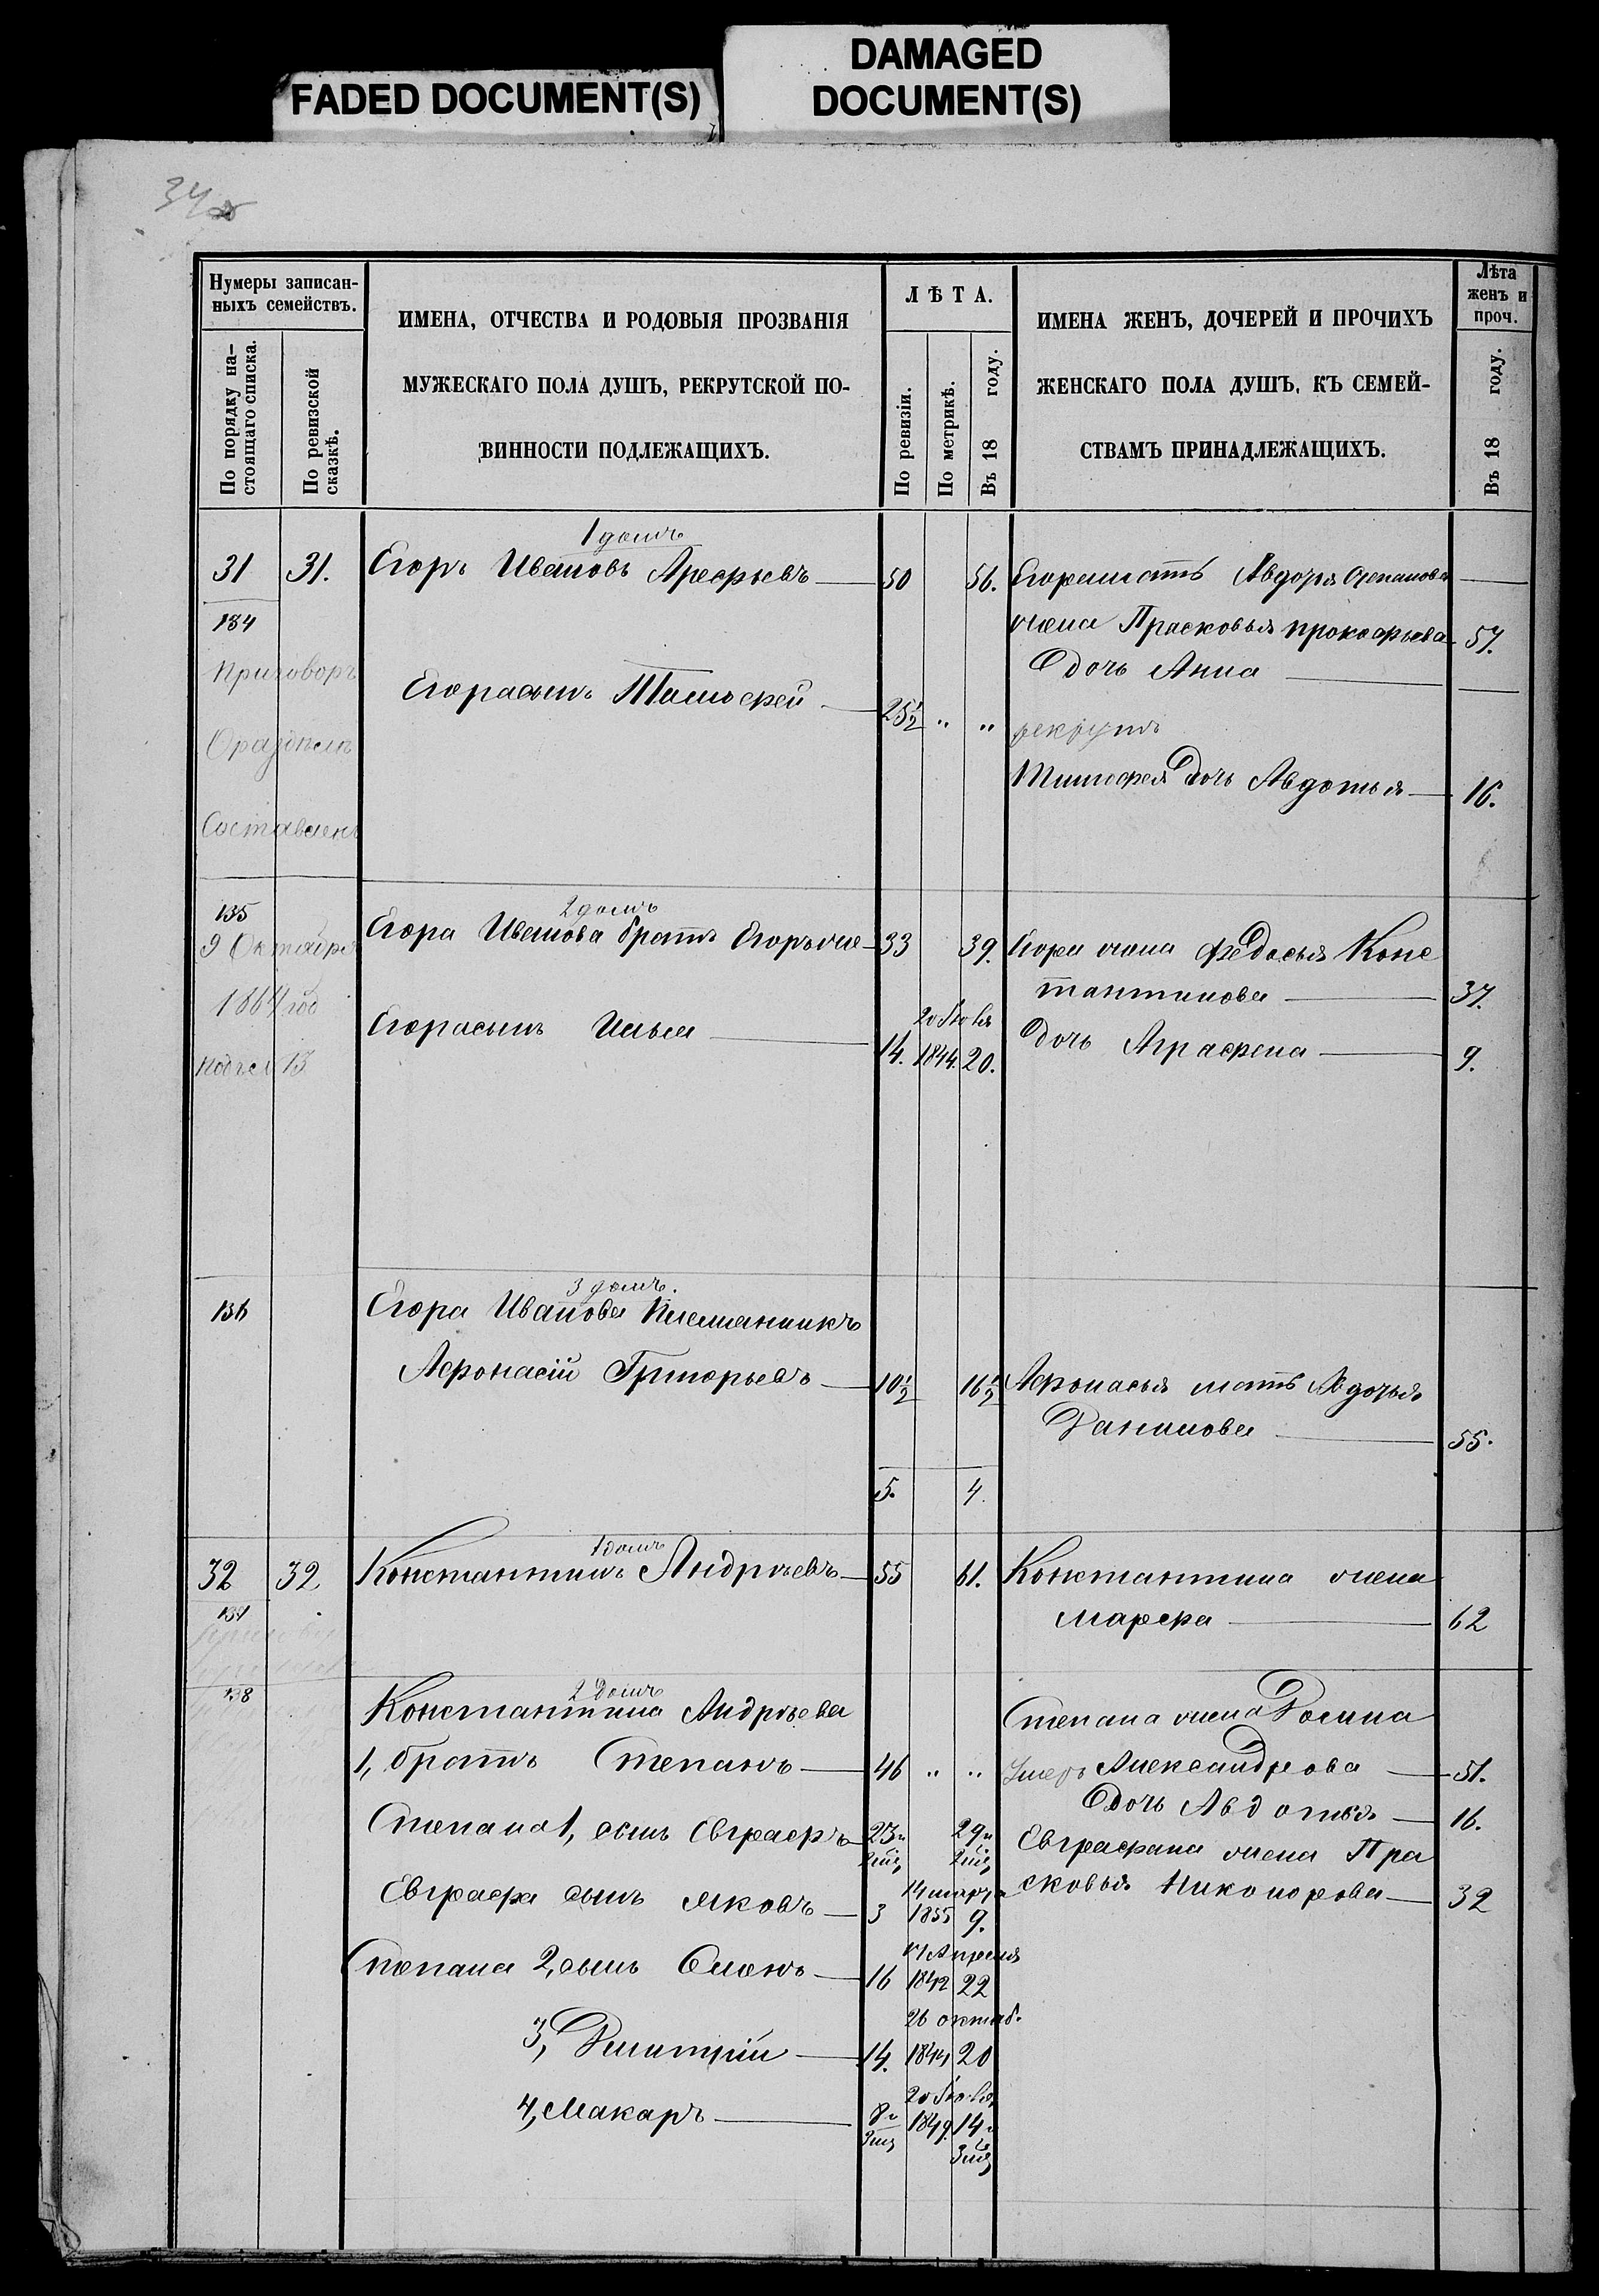 FADED DOCUMENT(S)
DAMAGED
DOCUMENT(S)
34
Нумеры записан-
ныхъ семействъ.
По порядку на-
стоящаго списка.
По ревизской
сказкѣ.
ИМЕНА, ОТЧЕСТВА И РОДОВЫЯ ПРОЗВАНІЯ
МУЖЕСКАГО ПОЛА ДУШЪ, РЕКРУТСКОЙ ПО-
ВИННОСТИ ПОДЛЕЖАЩИХЪ.
ЛѢТА.
По ревизіи.
По метрикѣ.
Въ 18 году.
ИМЕНА ЖЕНЪ, ДОЧЕРЕЙ И ПРОЧИХЪ
ЖЕНСКАГО ПОЛА ДУШЪ, КЪ СЕМЕЙ-
СТВАМЪ ПРИНАДЛЕЖАЩИХЪ.
Лѣта
женъ и
проч.
Въ 18 году.
1 домъ
31 31. Егоръ Ивановъ Арефьевъ 50 56. Егора мать Авдотья Степанова
134
жена Прасковья прокофьева 57.
Приговоръ
дочь Анна
Егора сынъ Тимофей 25 1/2 " " рекрутъ
О раздѣлѣ
Тимофея дочь Авдотья 16.
Составленъ
135
2 домъ
9 Октября
Егора Иванова братъ Егоръ же 33 39. Егора жена Федосья Конс
1864 год
тантинова 37.
20 Июля
Егора сынъ Илья 14. 1844. 20.
дочь Аграфена 9.
13
3 домъ.
136 Егора Иванова племянникъ
Афонасій Григорьевъ 10 1/2 16 1/2 Афонасья мать Авдотья
Данилова 55.
5. 4.
1 домъ
32 32 Константинъ Андрѣевъ 55 61. Константина жена
137
марфа 62
138
2 домъ
Константина Андрѣева
Степана жена
1, братъ Степанъ 46 " " умеръ Александрова 51.
дочь Авдотья 16.
Степана 1, сынъ Евграфъ 23 и 29 и
Евграфа жена Пра
Евграфа сынъ Яковъ 3 14 марта 1855 9.
сковья Никонорова 32
Степана 2, сынъ Семенъ 16 Апреля 1842 22
26 октяб.
3, Дмитрій 14. 1844 20
20 Июля
4, Макаръ 8 и 1849. 14 и